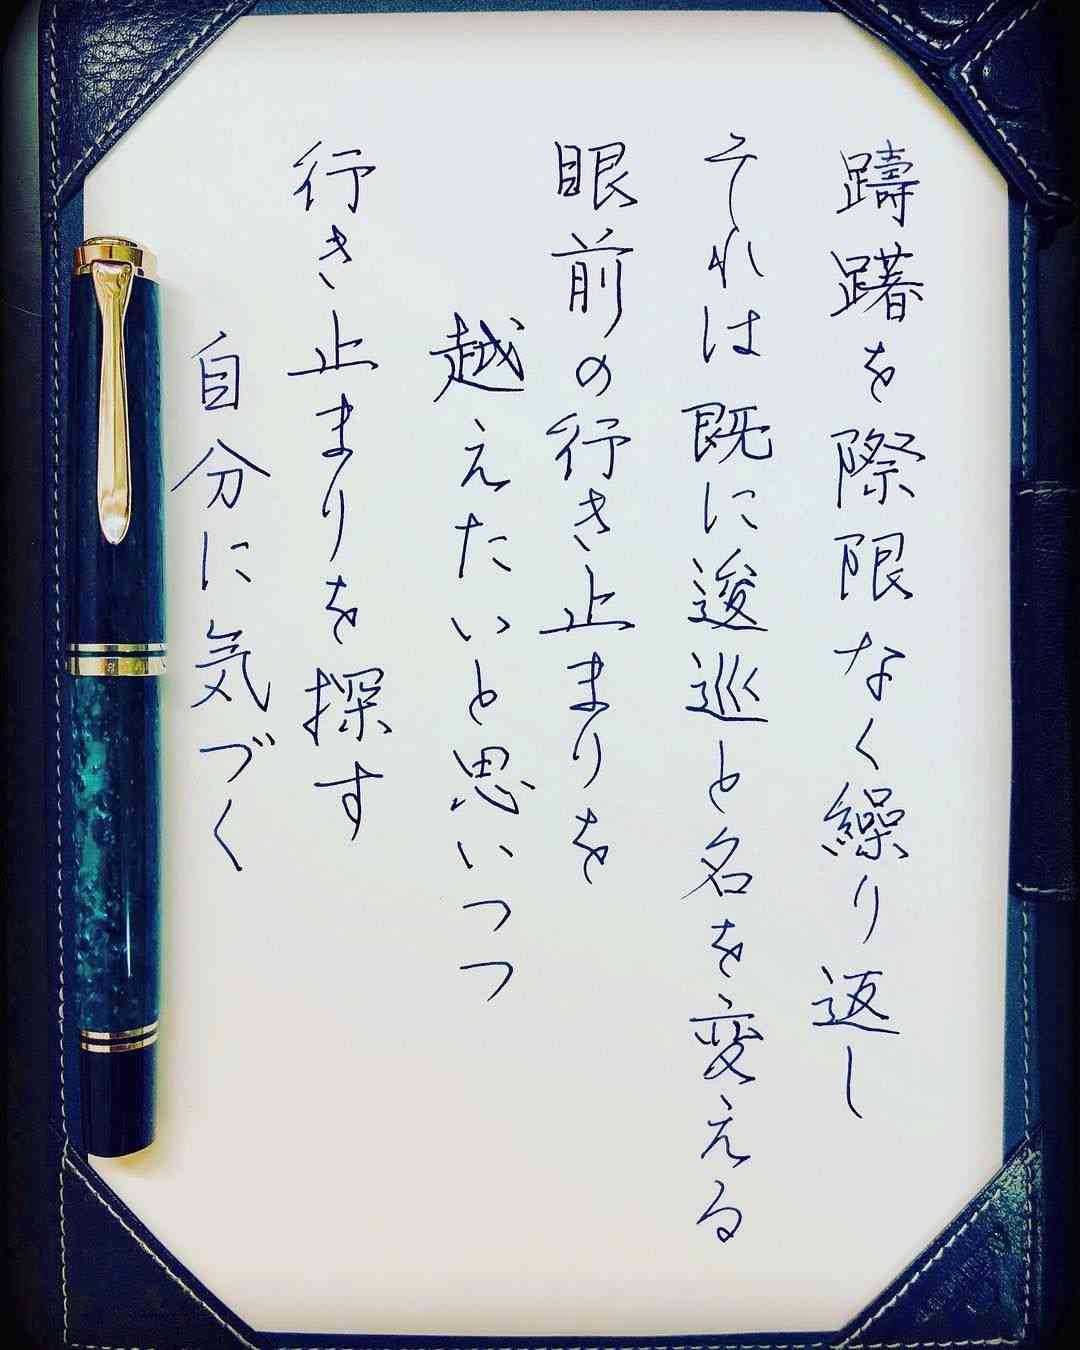 躊躇を際限なく繰り返し
それは既に逡巡と名を変える
眼前の行き止まりを
越えたいと思いつつ
行き止まりを探す
自分に気づく